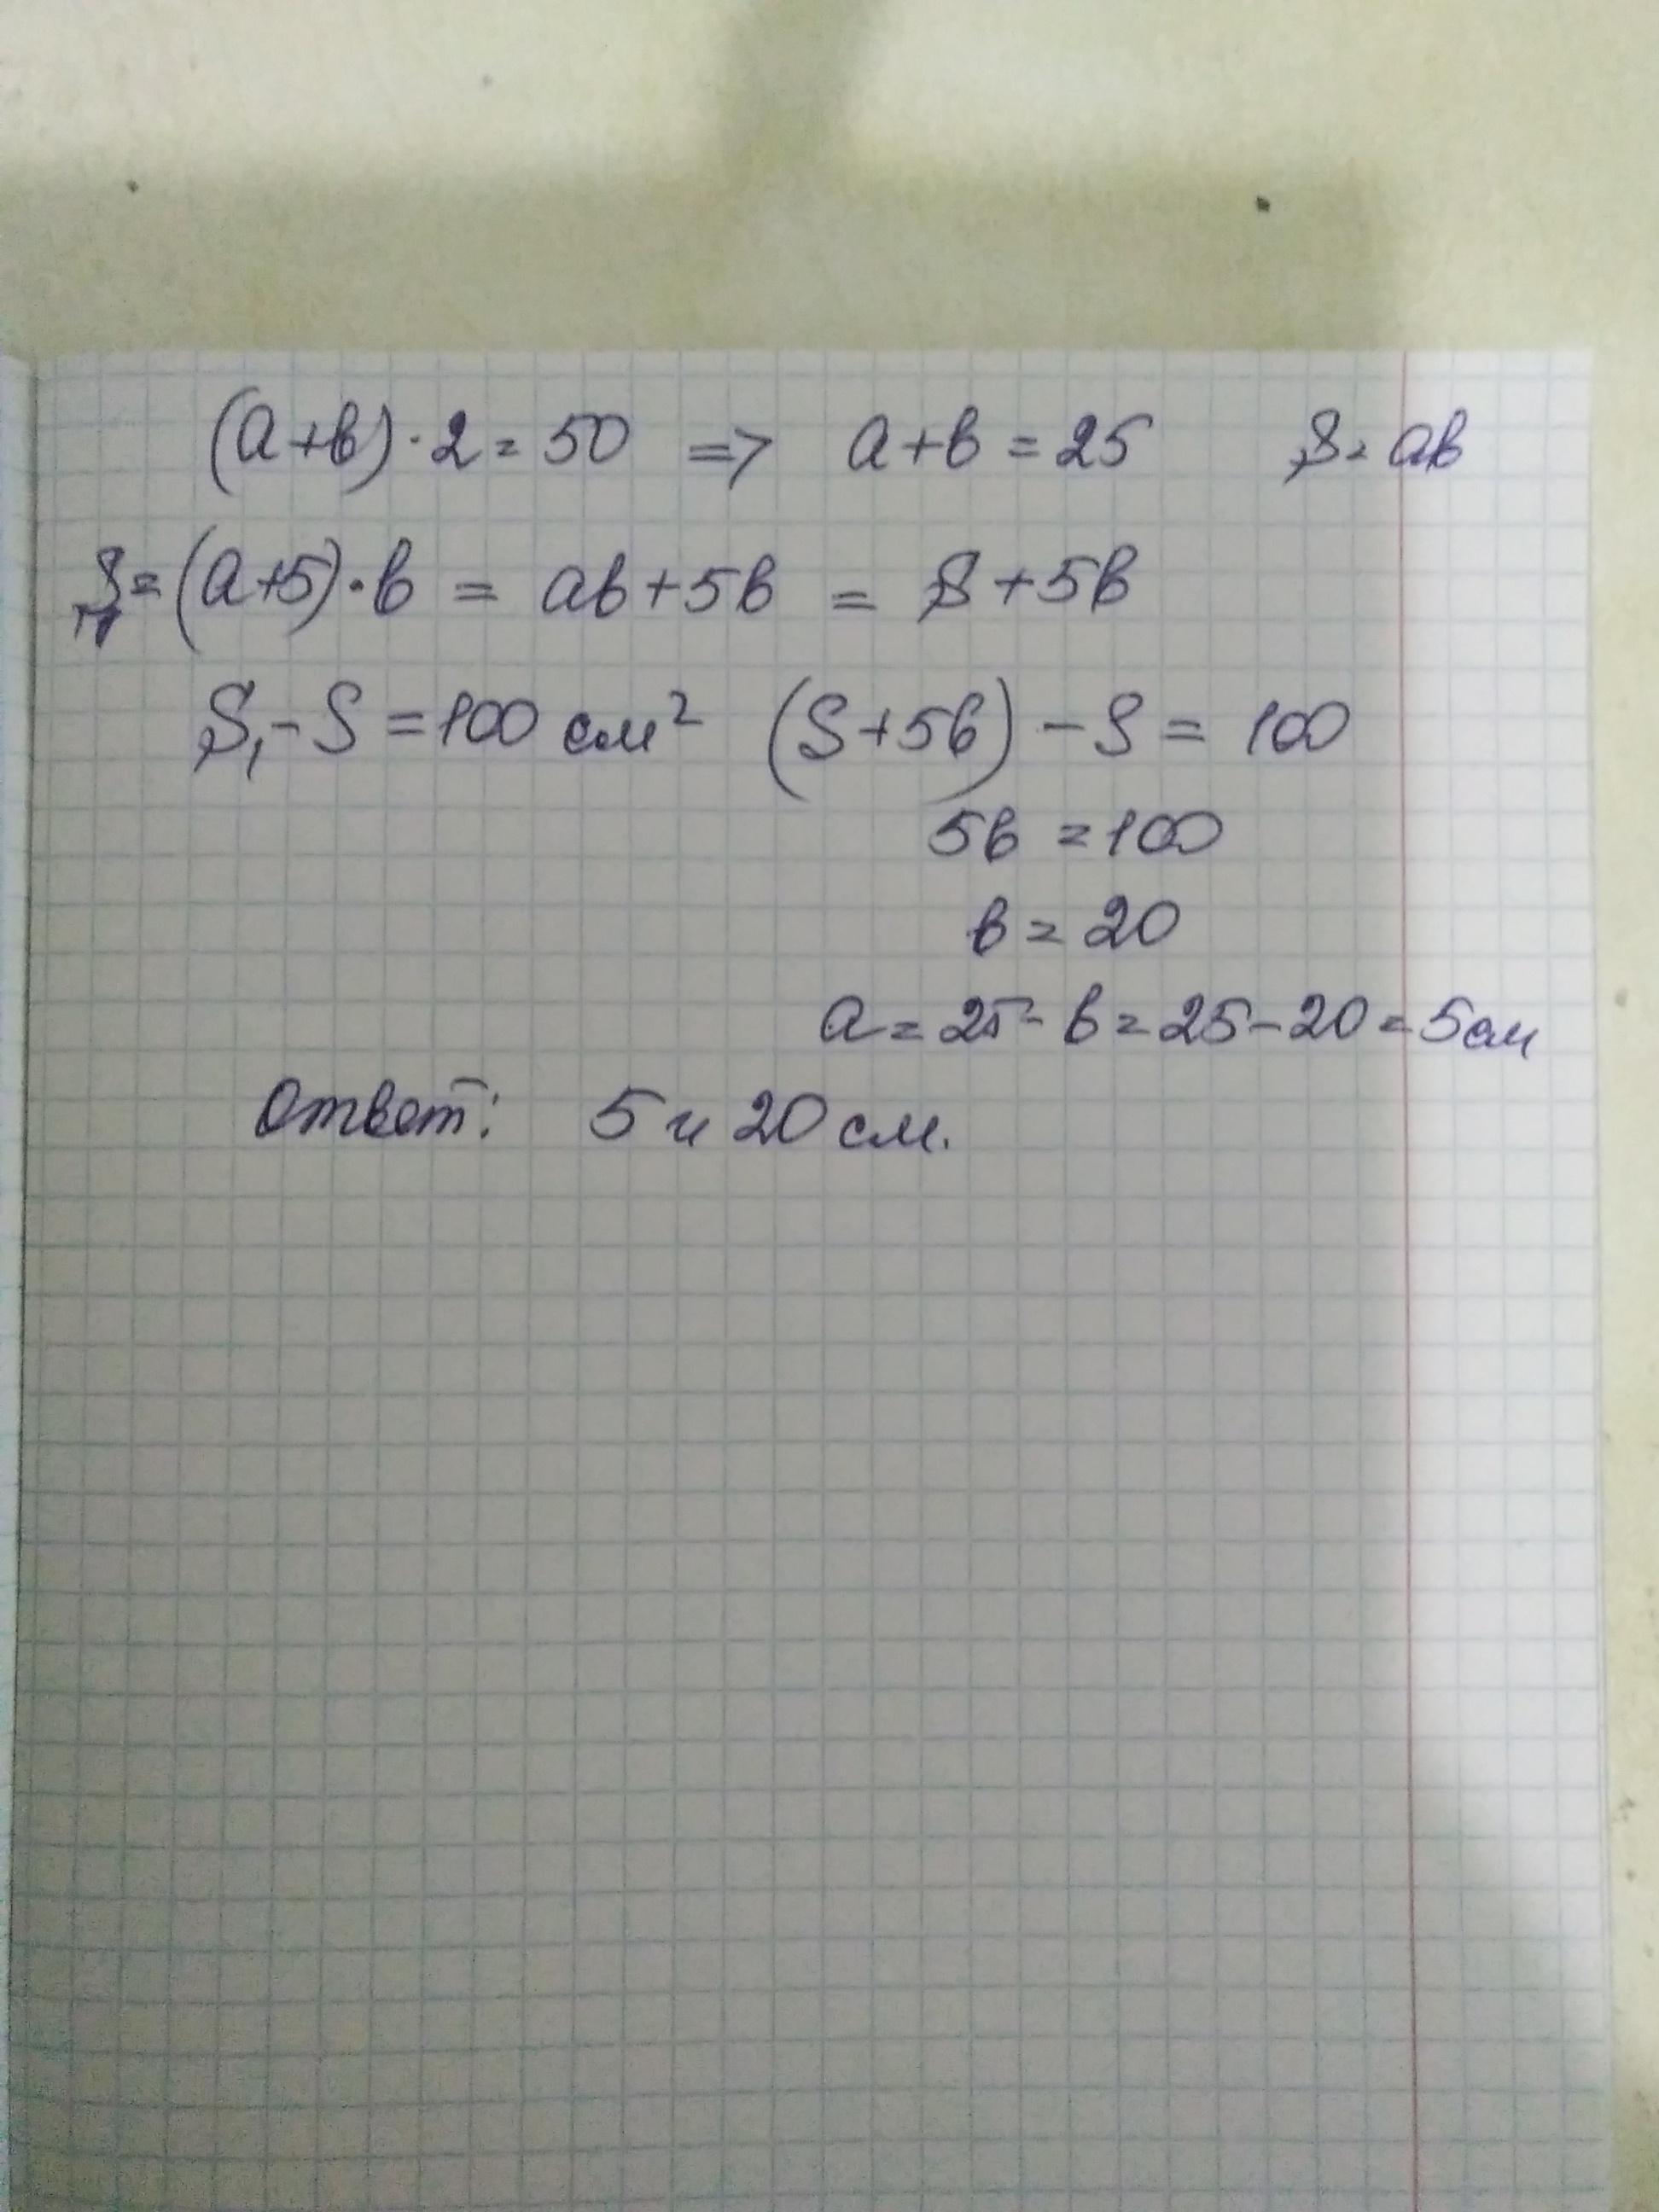 (a+b)·2=50 => a+b=25 S=ab
S₁=(a+5)·b = ab+5b = S+5b
S₁-S=100 см² (S+5b)-S=100
5b=100
b=20
a=25-b=25-20=5см
Ответ: 5 и 20 см.